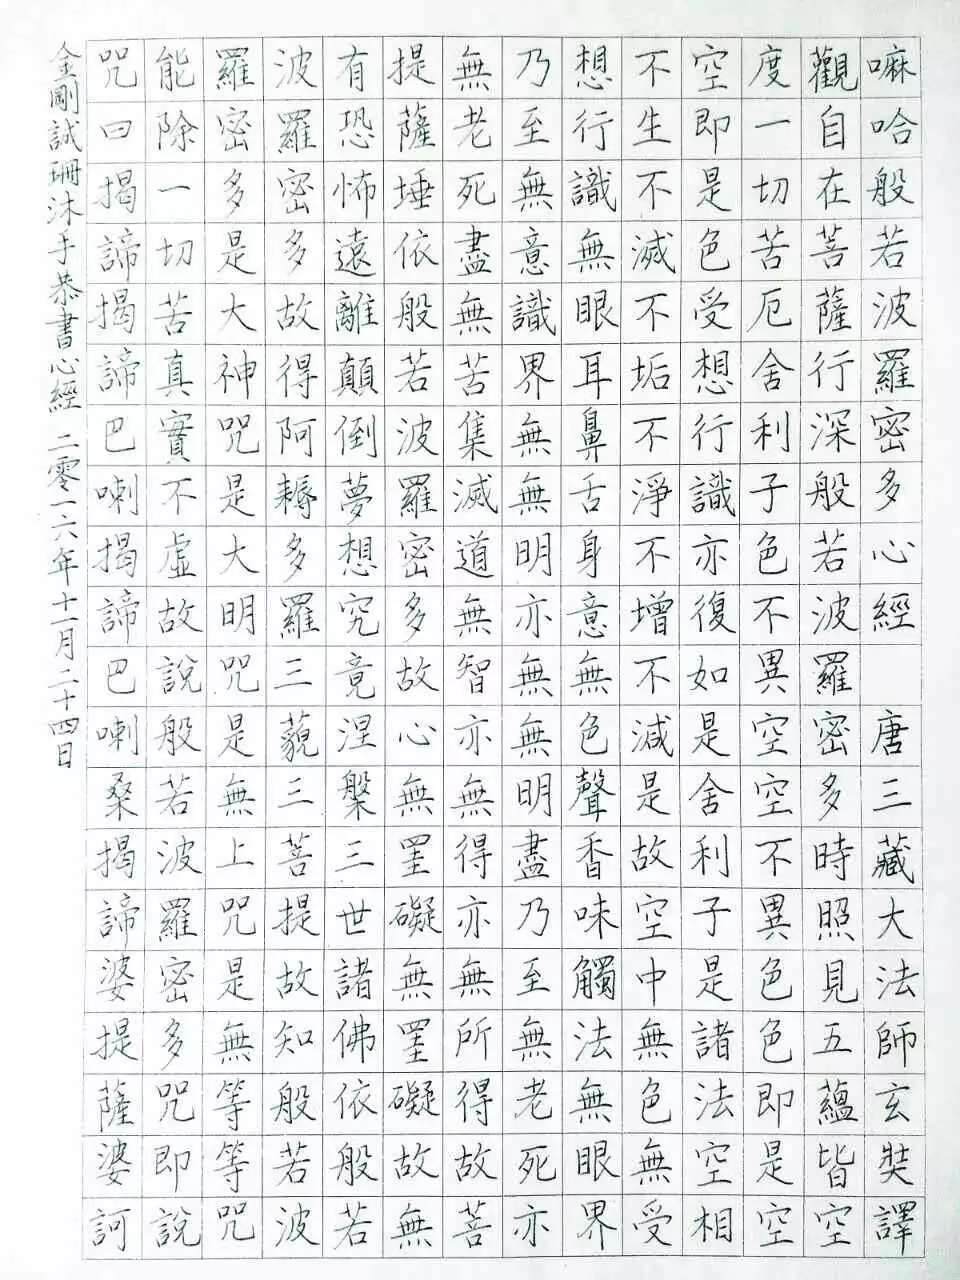 嘛哈般若波羅密多心經 唐三藏大法師玄奘譯
觀自在菩薩行深般若波羅密多時照見五蘊皆空
度一切苦厄舍利子色不異空空不異色色即是空
空即是色受想行識亦復如是舍利子是諸法空相
不生不滅不垢不淨不增不減是故空中無色無受
想行識無眼耳鼻舌身意無色聲香味觸法無眼界
乃至無意識界無無明亦無無明盡乃至無老死亦
無老死盡無苦集滅道無智亦無得亦無所得故菩
提薩埵依般若波羅密多故心無罣礙無罣礙故無
有恐怖遠離顛倒夢想究竟涅槃三世諸佛依般若
波羅密多故得阿耨多羅三藐三菩提故知般若波
羅密多是大神咒是大明咒是無上咒是無等等咒
能除一切苦真實不虛故說般若波羅密多咒即說
咒曰揭諦揭諦巴喇揭諦巴喇桑揭諦婆提薩婆訶
金剛誠珊沐手恭書心經 二零一六年十一月二十四日